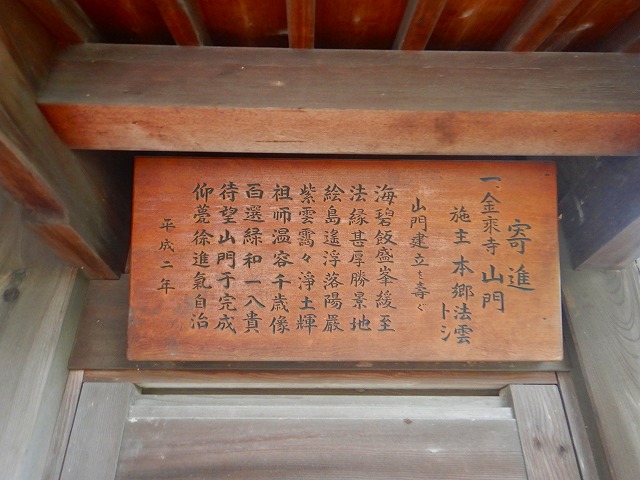 寄進
一、金乗寺 山門
施主 本郷法雲
トシ
山門建立を寿ぐ
海碧飯盛峯緩至
法縁甚厚勝景地
絵島遙浮落陽厳
紫雲靄々浄土輝
祖师温容千歳像
百選緑和一入貴
待望山門于完成
仰甍徐進氣自治
平成二年